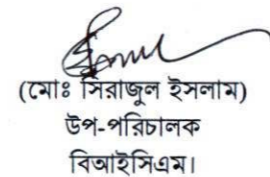 (মোঃ সিরাজুল ইসলাম)
উপ-পরিচালক
বিআইসিএম।